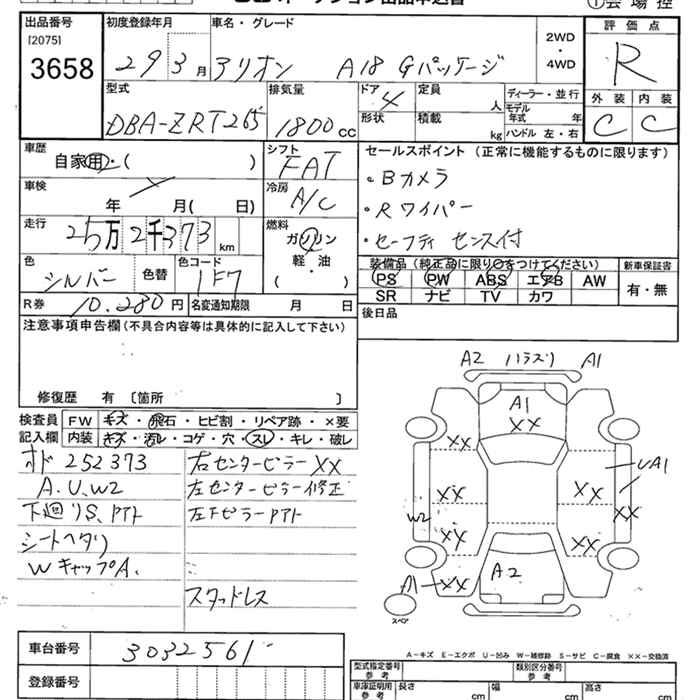 ①会場控
出品番号 初度登録年月 車名・グレード 2WD ・ 4WD 評価点
[2075]
3658 29 3月 アリオン A18 Gパッケージ R
型式 排気量 ドア 4 定員 人 ディーラー・並行 外装 内装
DBA-ZRT265 1800cc 形状 積載 kg モデル年式 年 ハンドル 左・右 C C
車歴 シフト セールスポイント(正常に機能するものに限ります)
自家用・( ) FAT ・Bカメラ
車検 冷房 A/C ・Rワイパー
年 月( 日)
走行 25万2千373km 燃料 ・セーフティ センス付
ガソリン
軽・油
( )
色 シルバー 色替 色コード 1F7
装備品(純正品に限り○をつけてください) 新車保証書
PS PW ABS エアB AW 有・無
SR ナビ TV カワ
R券 10,280円 名変通知期限 月 日 後日品
注意事項申告欄(不具合内容等は具体的に記入して下さい)
修復歴 有〔箇所 〕
検査員 FW キズ・飛石・ヒビ割・リペア跡・×要
記入欄 内装 キズ・汚レ・コゲ・穴・スレ・キレ・破レ
オド 252373 右センターピラーXX
A.U.W2 左センターピラー修正
下廻りS、アト 左Fピラーアト
シートヘタリ
WキャップA.
スタッドレス
A2 ハラズリ A1
A1
XX
XX
UA1
XX XX XX
W2
XX XX
A1 XX A2
スペア
A-キズ E-エクボ U-凹み W-補修跡 S-サビ C-腐食 XX-交換済
車台番号 3032561
登録番号
型式指定番号 参考 類別区分番号 参考
車庫証明用 参考 長さ cm 幅 cm 高さ cm